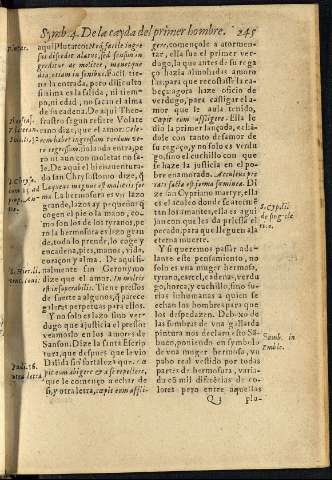 Symb. 4. De la cayda del primer hombre. 245
Plutar.
aqui Plutarco: Nec facile
sus discedit alacer, sed sensim in
greditur ac molliter, manetque
diu, etiam in senibus. Facil tie-
ne la entrada, pero dificulto
sissima es la salida, ni tiem-
po, ni edad, no sacan el alma
de su cadena. De aqui Theo-
frastro segun refiere Volate
rano dize, que el amor. Cele-
rem habet ingressum, tardũ ve-
ro regressum. Bolando entra, pe
ro ni aun con muletas no sa-
le. De aqui el bienauentura-
do san Chrysostomo dize, q̃
Laqueus magnus est mulieris for
ma. La hermosura es vn lazo
grande, lazos ay pequeños q̃
cogen el pie o la mano, co-
mo son los de los tyranos, pe-
ro la hermosura es lazo gran
de, todo lo prende, lo coge y
encadena, pies, manos, vida,
coraçon y alma. De aqui fi-
nalmente san Geronymo
dize que el amor. In mulie
est insuperabilis. Tiene pressos
de suerte a algunos, q̃ parece
galeras perpetuas para ellos.
Y no solo es lazo sino ver-
dugo que ajusticia el presso:
veamoslo en los amores de
Sanson. Dize la santa Escrip
tura, que despues que le vio
Dalida sin fortaleza que. Cæ
pit eum abigere & a se repellere,
que le començo a echar de
si, y otra letra, cæpit eum affli-
gere, començole a atormen-
tar, ella fue el primer ver-
dugo, la que antes de su rega
ço hazia almohadas amoro
sas, para que reclinasse la ca-
beça agora haze oficio de
verdugo, para castigar el a-
mor que la auia tenido,
Cæpit eum affligere. Ella le
dio la primer lançada, echã-
dole con tanto desamor de
su regaço, y no solo es verdu
go, sino el cuchillo con que
se haze la justicia en el po-
bre enamorado. Aculeus pec
cati facta est forma feminea. Di
ze san Cypriano martyr, ella
es el açuelo donde se atormen
tan los amantes, ella es agui
jon con que les da priessa el
pecado, para que lleguen a la
eterna muerte.
Y si queremos passar ade-
lante este pensamiento, no
solo es vna muger hermosa,
tyrano, carcel, cadena, verdu
go, horca, y cuchillo, sino fu-
rias inhumanas a quien se
echan los hombres para que
los despedazen. Debaxo de
las sombras de vna gallarda
pintura nos declaro esto Sã-
buco, poniendo en symbolo
de vna muger hermosa, vn
pabo real vestido por todas
partes de hermosura, varia-
da cõ mil diferẽcias de co-
lores pero entre aquellas
S. Cypri
de singule
ric.
Sãmb. in
Emble.
Iudi. 16.
otra letra
Q 3 pla-